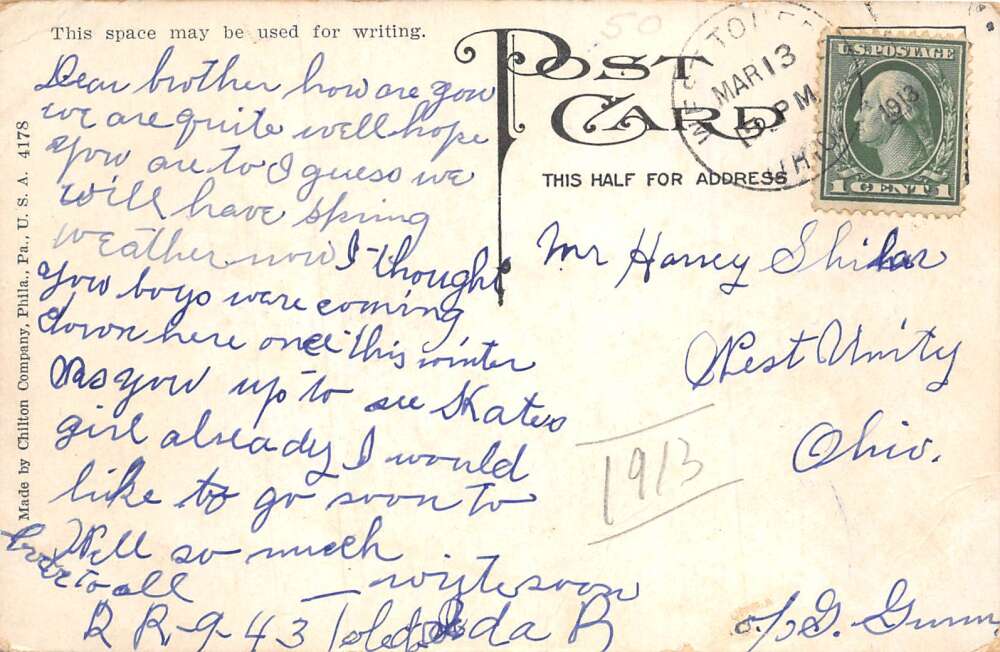 This space may be used for writing.
POST CARD
THIS HALF FOR ADDRESS
Made by Chilton Company, Phila., Pa., U. S. A. 4178
50
WEST TOLEDO
MAR 13
PM
1913
OHIO
U.S. POSTAGE
1 CENT 1
Dear brother how are you
we are quite well hope
you are to I guess we
will have spring
weather now I thought
you boys were coming
down here once this winter
Was you up to see Kates
girl already I would
like to go soon to
Well so much
love to all
write soon
R R-9-43 Toledo Ida B
Mr Harvey
West Unity
Ohio.
1913
c/o G.